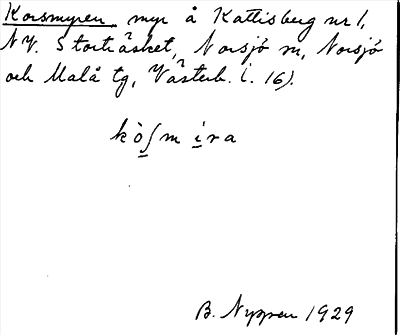 Korsmyren myr å Kattisberg nr 1,
NV. Storträsket, Norsjö sn, Norsjö
och Malå tg, Västerb. l. 16).
kò̱ʃmi̱ra
B. Nyppen 1929